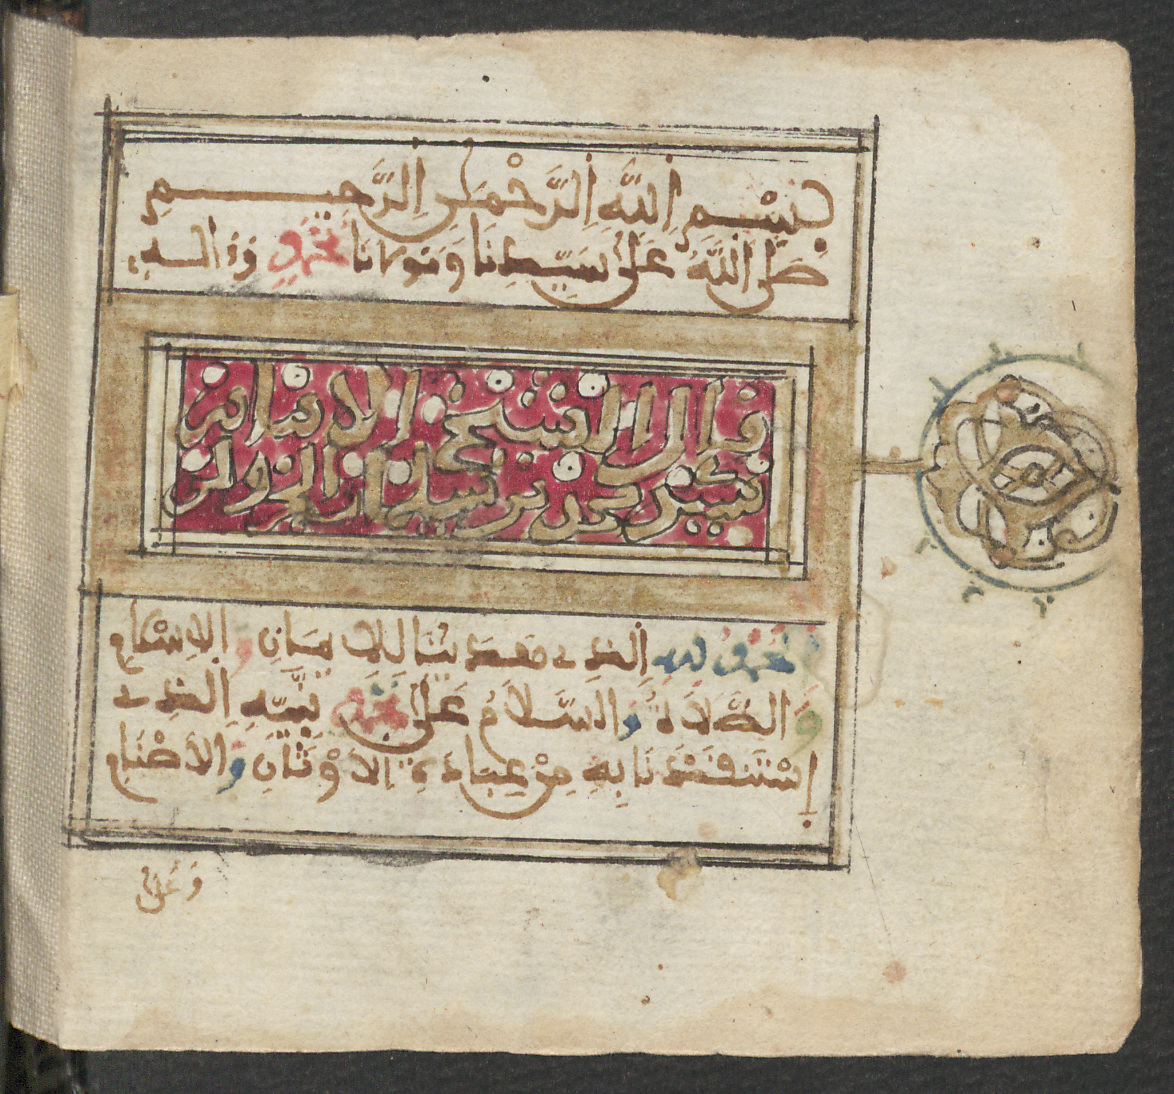 بِسْمِ اِللَّهِ اِلرَّحْمَٰنِ اِلرَّحِيمِ
صَلَّى اَللَّهُ عَلَىٰ سَيِّدِنَا وَمَوْلَانَا مُحَمَّدٍ وَءَالِهِ
قال الشيخ الامام
محمد بن سليمان الجزولي
اَلْحَمْدُ لِلهِ اِلذِے هَدَيٰنَا لِلِايمَانِ وَالِاسْلَامِ
وَالصَّلَاةُ وَالسَّلَامُ عَلَىٰ مُحَمَّدٍ نَبِيِّهِ اِلذِے
اِسْتَنقَذَنَا بِهِ مِنْ عِبَادَةِ اِلَاوْثَانِ وَالَاصْنَامِ
وَعَلَىٰ